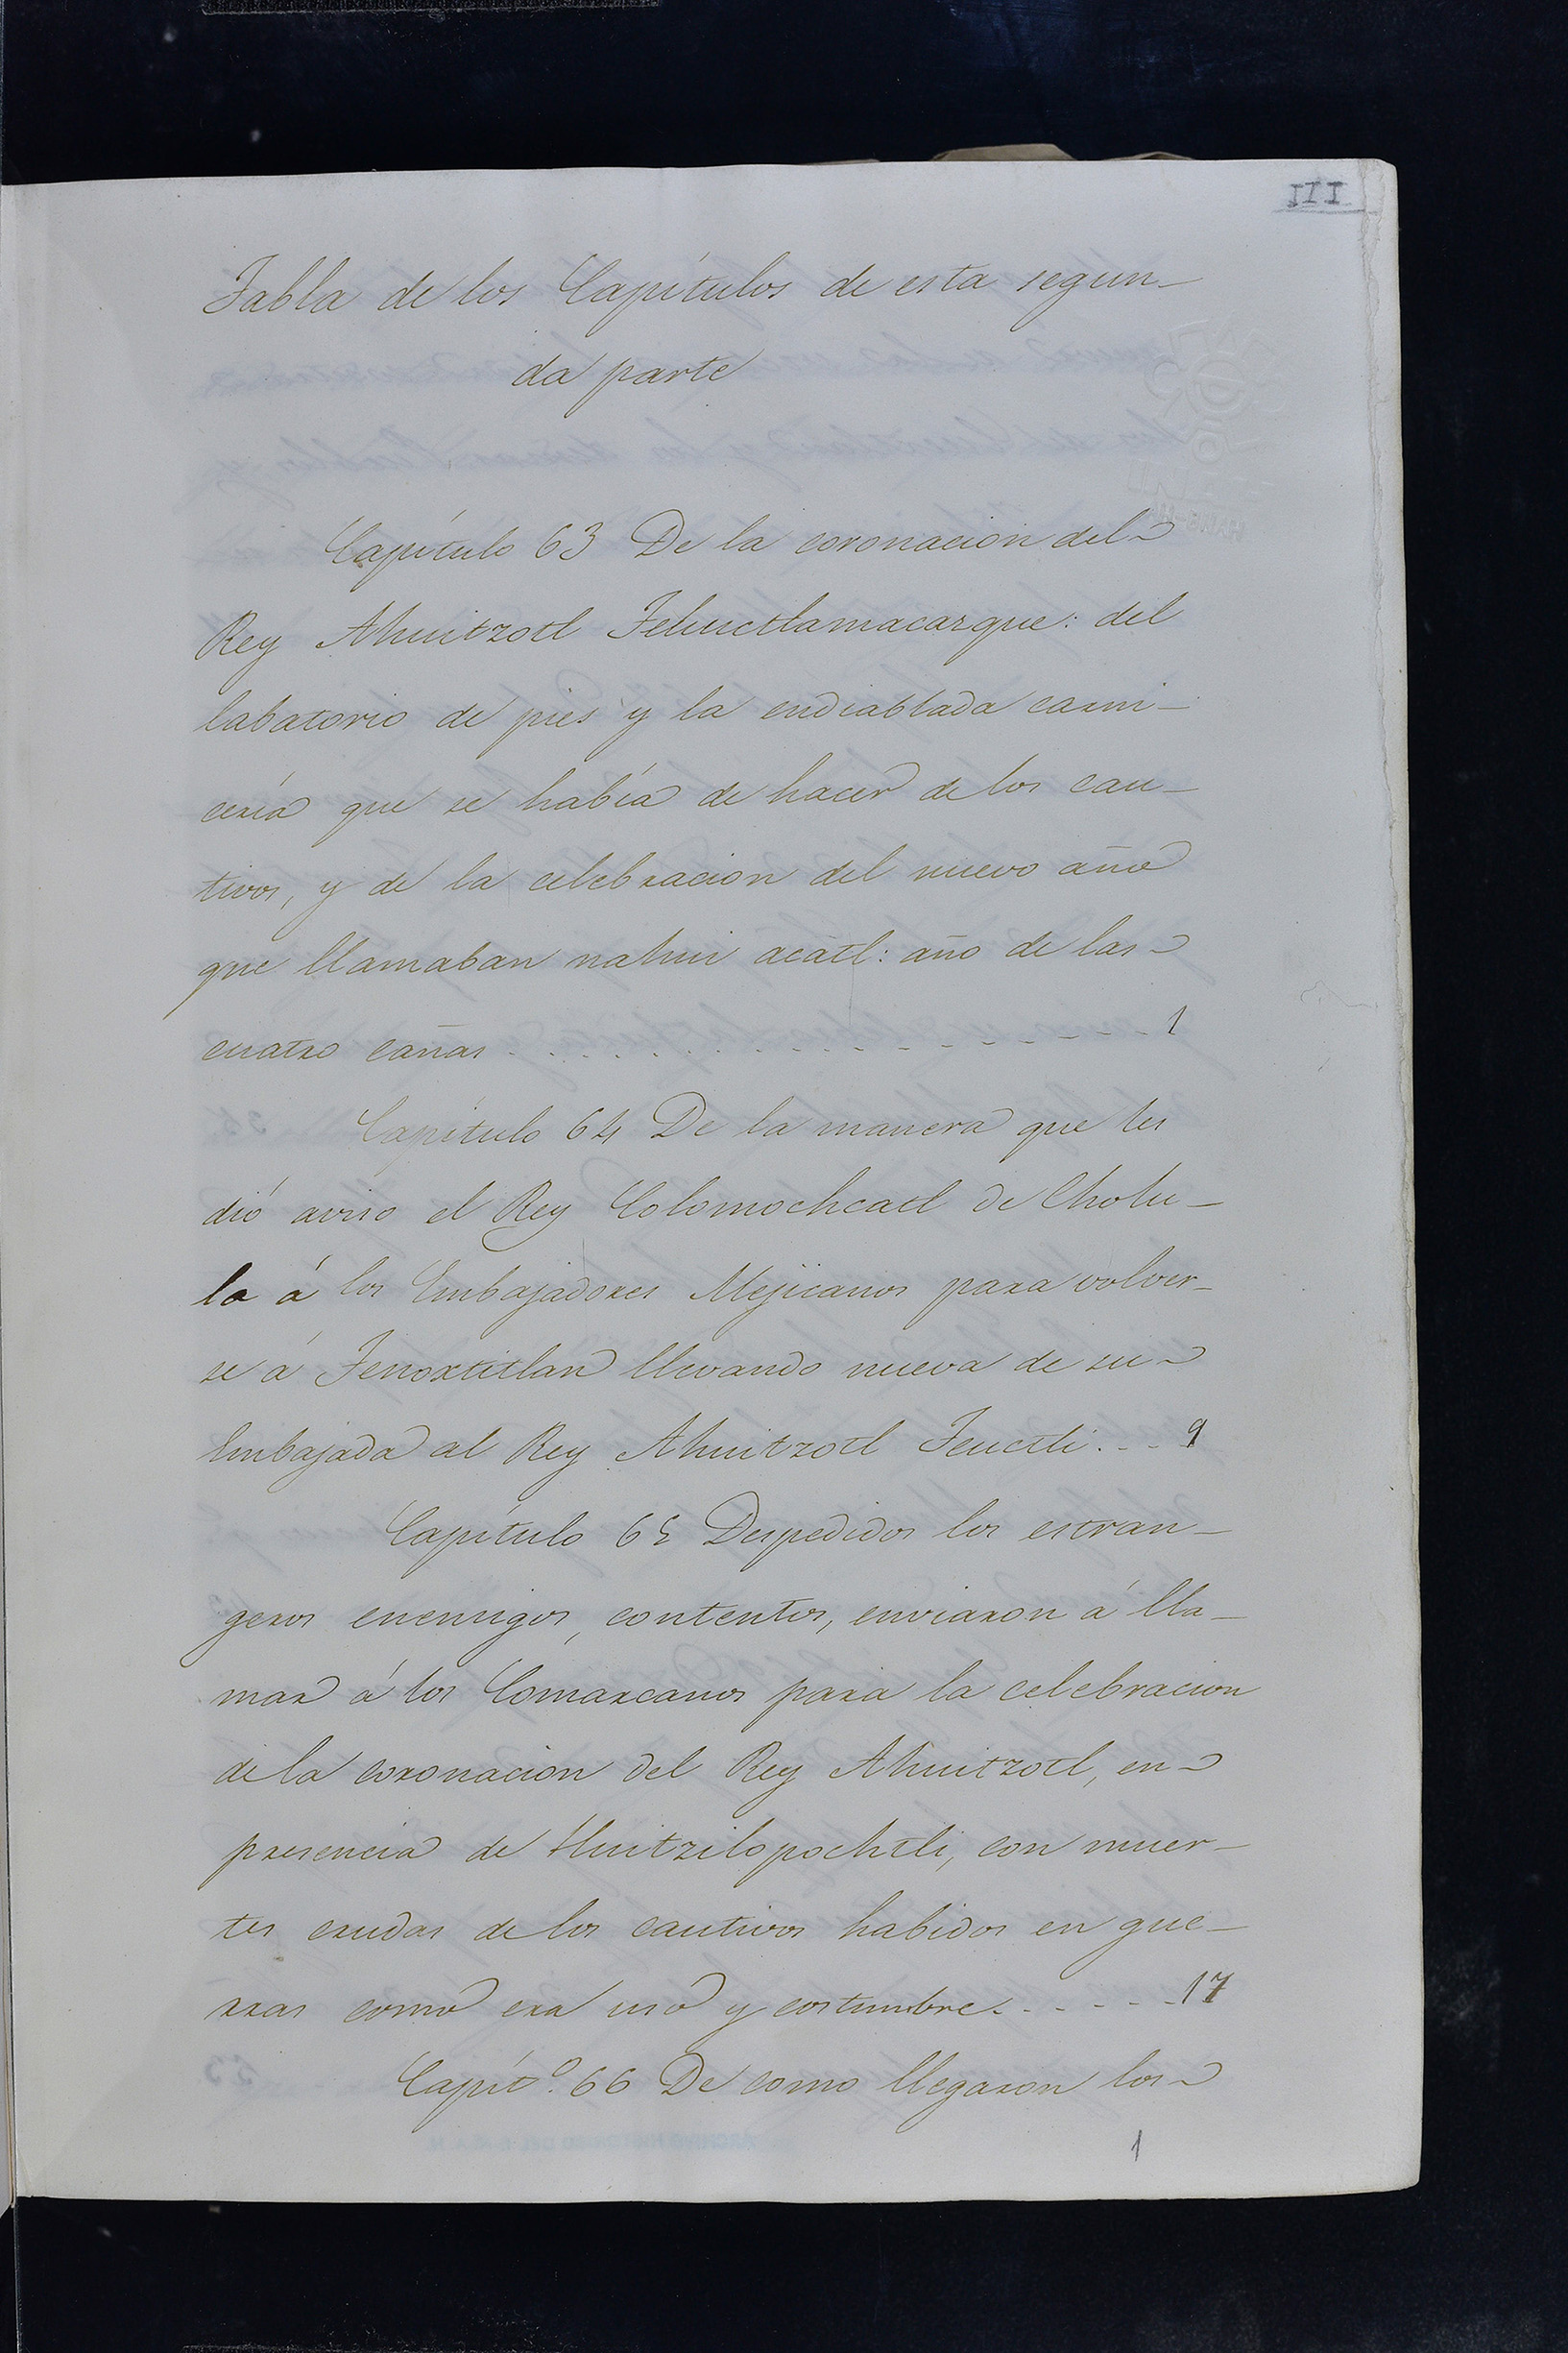 III
Tabla de los Capítulos de esta segun-
da parte
Capítulo 63 De la coronacion del
Rey Ahuitzotl Tehuctlamacazque: del
labatorio de pies y la endiablada carni-
cería que se había de hacer de los cau-
tivos, y de la celebracion del nuevo año
que llamaban nahui acatl: año de las
cuatro cañas . . . . . . . . . . . . . . . . . . 1
Capítulo 64 De la manera que les
dió aviso el Rey Colomochcatl de Cholu-
la á los Embajadores Mejicanos para volver-
se á Tenoxtitlan llevando nueva de su
Embajada al Rey Ahuitzotl Teuctli. . . 9
Capítulo 65 Despedidos los estran-
geros enemigos, contentos, enviaron á lla-
mar á los Comarcanos para la celebracion
de la coronacion del Rey Ahuitzotl, en
presencia de Huitzilopochtli, con muer-
tes crudas de los cautivos habidos en gue-
rras como era uso y costumbre. . . . . . 17
Capítº. 66 De como llegaron los
1